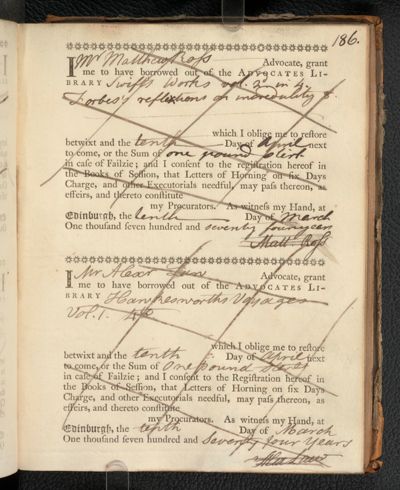 186.
I Mr Matthew Ross Advocate, grant
me to have borrowed out of the ADVOCATES LI-
BRARY Swifts Works vol. 2d in 4.
Forbes's reflections on incredulity 8.
which I oblige me to reſtore
betwixt and the tenth Day of April next
to come, or the Sum of one pound sterl:
in caſe of Failzie; and I conſent to the regiſtration hereof in
the Books of Seſſion, that Letters of Horning on ſix Days
Charge, and other Executorials needful, may paſs thereon, as
effeirs, and thereto conſtitute
my Procurators. As witneſs my Hand, at
Edinburgh, the tenth Day of March
One thouſand ſeven hundred and seventy four years
Matt: Ross
I Mr Alexr Law Advocate, grant
me to have borrowed out of the ADVOCATES LI-
BRARY Hawkesworths Voyages
Vol. 1. 4to
which I oblige me to reſtore
betwixt and the tenth Day of April next
to come, or the Sum of One pound Sterl:
in caſe of Failzie; and I conſent to the Regiſtration hereof in
the Books of Seſſion, that Letters of Horning on ſix Days
Charge, and other Executorials needful, may paſs thereon, as
effeirs, and thereto conſtitute
my Procurators. As witneſs my Hand, at
Edinburgh, the tenth Day of March
One thouſand ſeven hundred and Seventy four Years
Alex Law